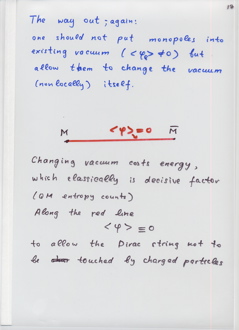 The way out; again:
one should not put monopoles into
existing vacuum (<φ> ≠ 0) but
allow them to change the vacuum
(nonlocally) itself.
M <φ> = 0 M̅
Changing vacuum costs energy,
which classically is decisive factor
(QM entropy counts)
Along the red line
<φ> ≡ 0
to allow the Dirac string not to
be touched by charged particles